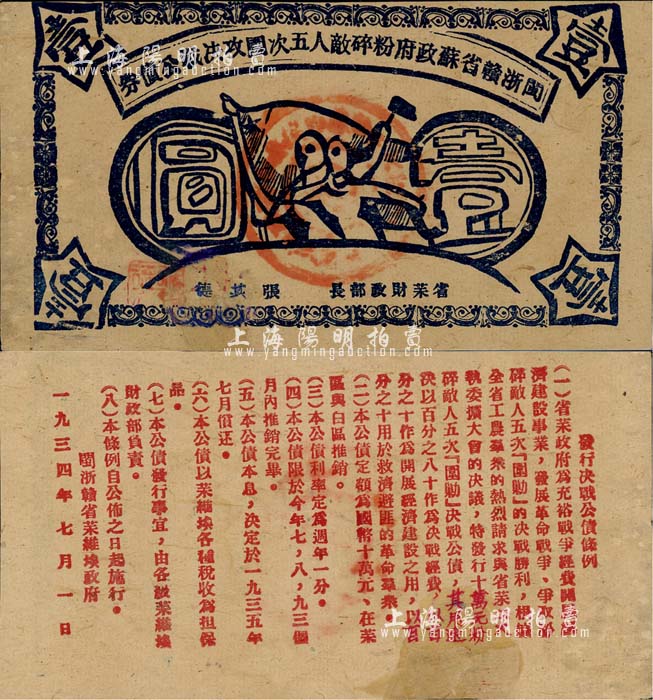 壹
壹
閩浙贛省蘇政府粉碎敵人五次圍攻決
券
圓
壹
省苿財政部長 張其德
壹
壹
上海陽明拍賣
www.yangmingauction.com
發行決戰公債條例
(一)省苿政府爲充裕戰爭經費
濟建設事業,發展革命戰爭、爭取
碎敵人五次『圍勦』的決戰勝利,根
全省工農羣衆的熱烈請求與省苿
執委擴大會的決議,特發行十萬元
碎敵人五次『圍勦』決戰公債,其用
決以百分之八十作爲決戰經費,
分之十作爲開展經濟建設之用,以百
分之十用於救濟避匪的革命羣衆。
(二)本公債定額爲國幣十萬元、在苿
區與白區推銷。
(三)本公債利率定爲週年一分。
(四)本公債限於今年七,八,九三個
月內推銷完畢。
(五)本公債本息,決定於一九三五年
七月償还。
(六)本公債以苿維埃各種税收爲担保
品。
(七)本公債發行事宜,由各級苿維埃
財政部負責。
(八)本條例自公佈之日起施行。
閩浙贛省苿維埃政府
一九三四年七月一日
上海陽明拍賣
www.yangmingauction.com